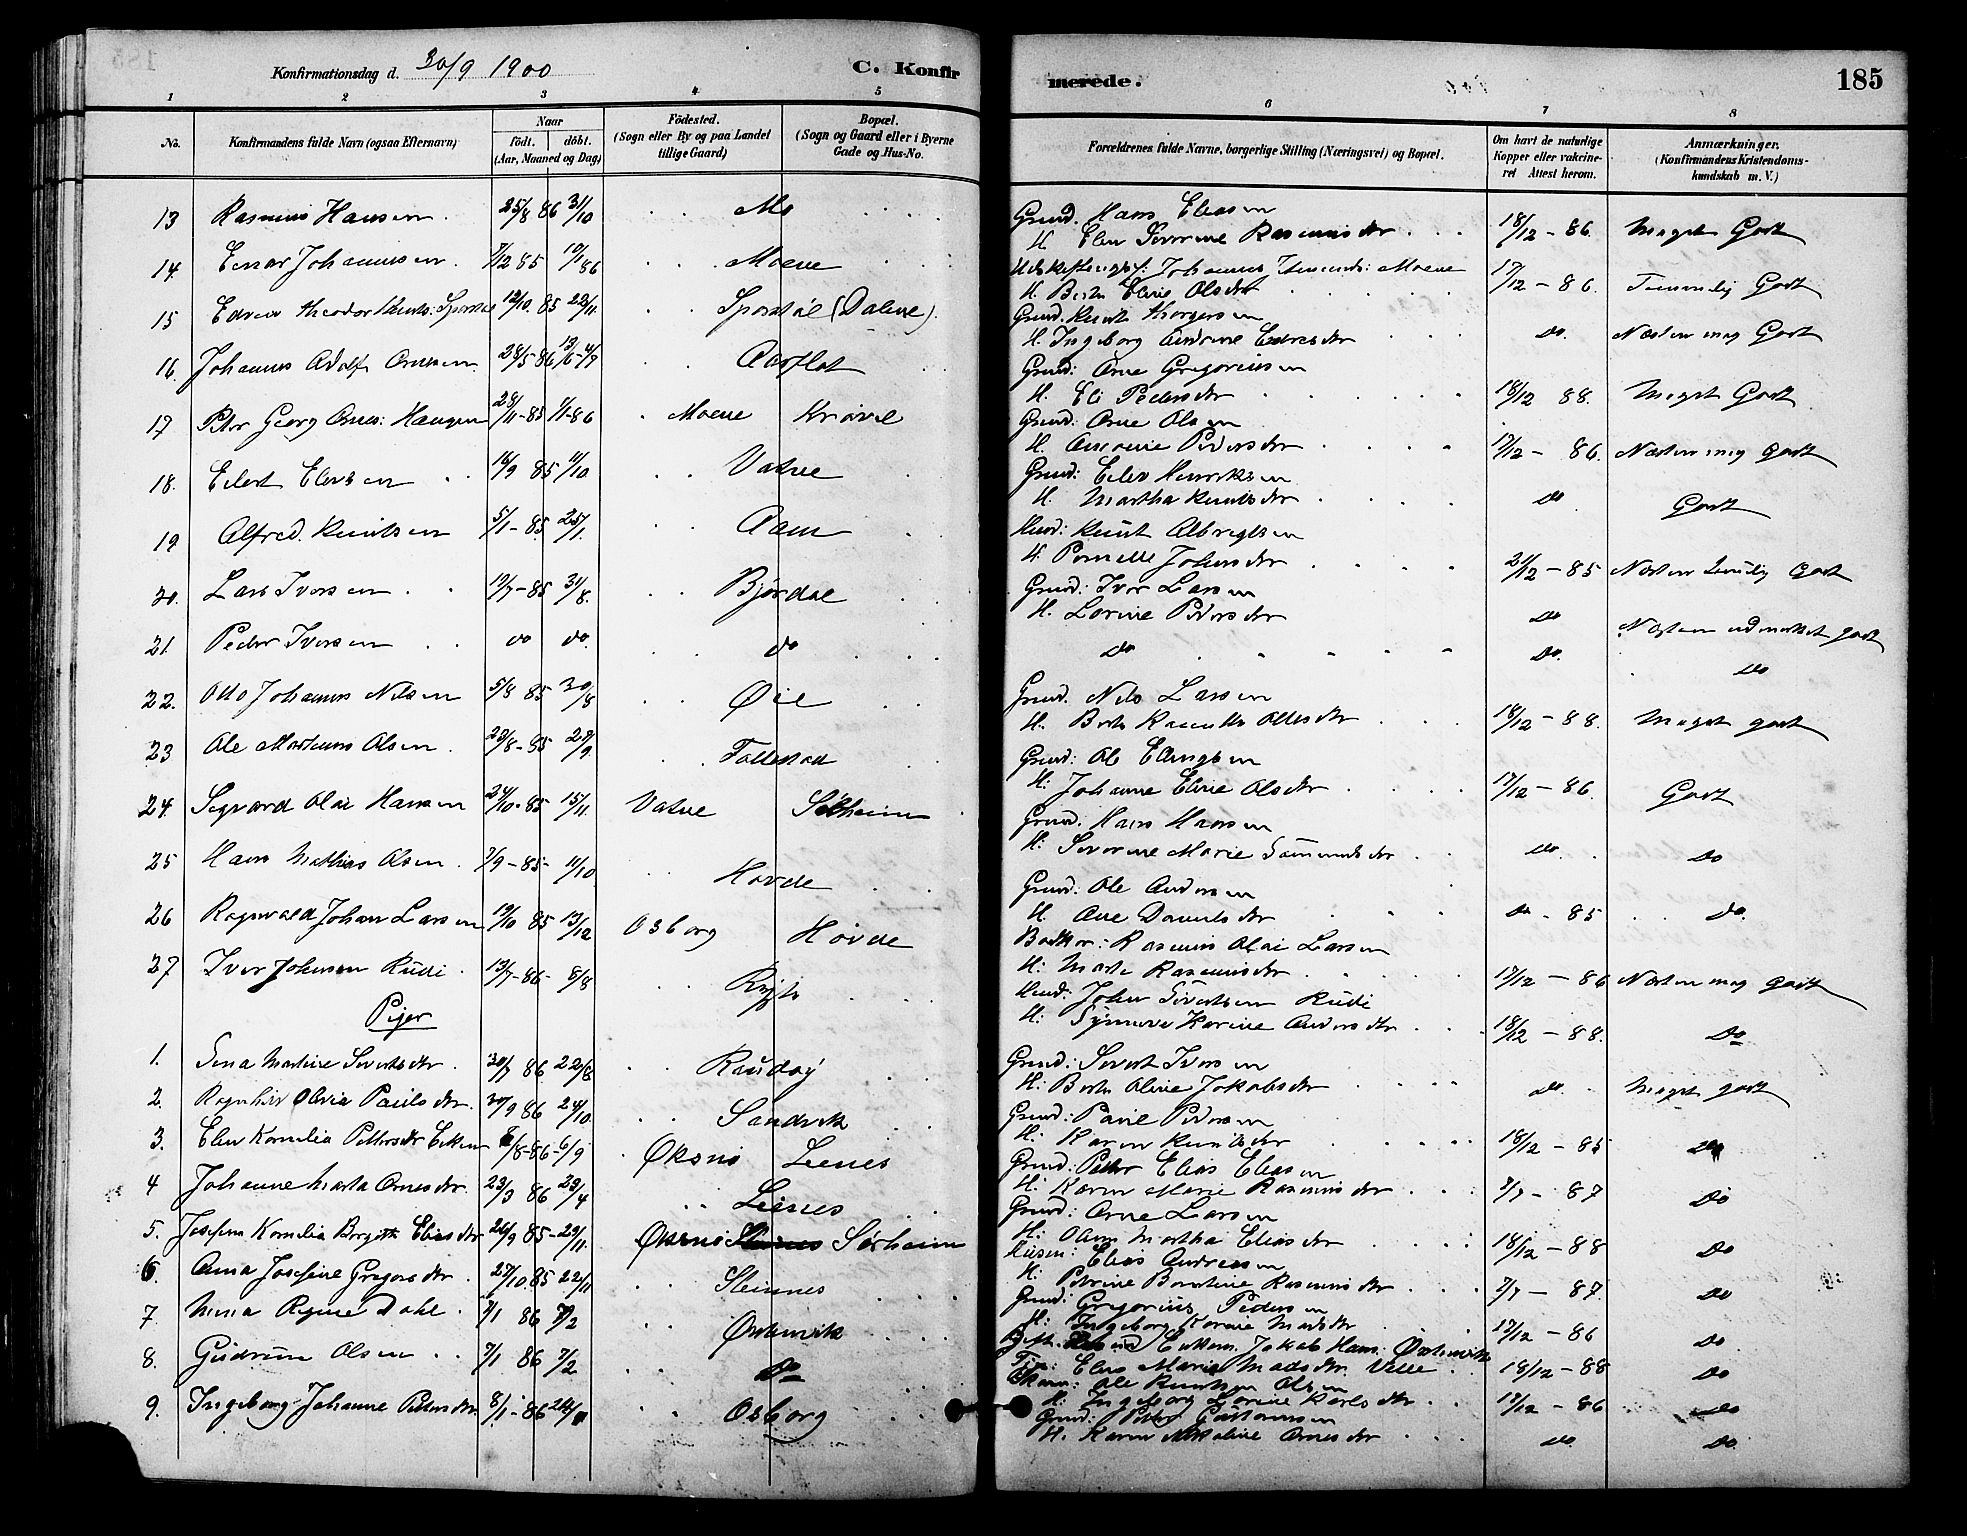 Konfirmationsdag d. 30/9 1900
C. Konfirmerede.
185
1 2 3 4 5 6 7 8
No.
Konfirmandens fulde Navn (ogsaa Efternavn)
Naar
födt. döbt.
(Aar, Maaned og Dag)
Födested.
(Sogn eller By og paa Landet tillige Gaard)
Bopæl.
(Sogn og Gaard eller i Byerne Gade og Hus-No.
Forældrenes fulde Navne, borgerlige Stilling (Næringsvei) og Bopæl.
Om havt de naturlige Kopper eller vakcineret Attest herom.
Anmærkninger.
(Konfirmandens Kristendomskundskab m. V.)
13 Rasmus Hansen 25/8 86 31/10 Mo Grmd. Hans Eliasen H. Elen Severine Rasmusdtr 18/12 - 86. Meget Godt
14. Einar Johannesen 7/12 85 10/1 86 Moene Johannes Moene H. Berte Eline Olsdtr 17/12 - 86. Temmelig Godt
15 Edvin Theodor 12/10. 85 22/11. (Dalene). Grmd. Knut H. Ingeborg Andrine Endresdtr do. Næsten meg Godt
16. Johannes Adolf Arnesen 28/5 86 13/6 - 4/7 Aasflot Grmd: Arne Gregoriusen H. Eli Pedersdtr 18/12 88. Meget Godt
17 Peter Georg Arnes: Haugen 28/11-85 1/1-86 Moene Krøvel Grmd: Arne Olsen H. Pedersdtr 17/12 - 86. Næsten meg Godt
18. Eilert Eilersen 16/9 85 11/10 Vatne Grmd: Eiler Henriksen H. Martha Knutsdtr do Godt
19 Alfred Knutsen 5/1-85 25/1. Aam Knut Albregtsen H. Pernelle Johansdtr 21/12 - 85 Næsten Godt
20. Lars Iversen 19/7-85 31/8. Bjørdal Grmd: Iver Larsen H. Lorine Pedersdtr do Næsten udmerket godt
21. Peder Iversen do do. do do do. do
22. Otto Johannes Nilsen 5/8 85 30/8 Øie Grmd. Nils Larsen H. Berte Ottesdtr 18/12 - 88. Meget godt
23 Ole Martinus Olsen 23/8-85 27/9. Follestad Grmd: Ole H: Johanne Eline Olsdtr 17/12 - 86. Godt
24. Sigvard Olai Hansen 24/10-85 15/11. Vatne Sætheim Grmd: Hans Hansen H: Severine Marie do. do
25 Hans Mathias Olsen 7/9-85- 11/10 Hovde Grmd: Ole Andersen H. Ane Danielsdtr do - 85 do.
26 Ragnvald Johan Larsen 19/10 85 13/12 Osborg Hovde Rasmus Olai Larsen H: Marte Rasmusdtr 17/12 - 86 Næsten meg godt
27 Iver Johnsen Rudi 13/7-86- 8/8 John Sivertsen Rudi H: Synneve Karine Andersdtr 18/12 - 88. Do
Piger
1. Sina Martine Sivertsdtr 30/7 86 22/8 Raudøy Grmd: Sivert Iversen H: Berte Oline Jakobsdtr do. Meget godt
2. Ragnhild Olivia Paulsdtr. 30/9 86 24/10. Sandvik Grmd: Paul Pedersen H: Karen Knutsdtr 18/12 - 85 do
3. Elen Kornelia Pettersdtr 8/8-86-6/9 Øksnes Leines Grmd: Petter Elias Eliasen H: Karen Marie Rasmusdtr 7/7 - 87 do
4 Johanne Marta Arnesdtr 23/3 86 23/4 Leines Grmd: Arne Larsen H: Martha Eliasdtr 18/12 - 88 do
5. Josefine Kornelia Birgitte Eliasdtr 26/9 85-29/11. Øksnes Sørheim Elias Andreasen H. Petrine Rasmusdtr 7/7 - 87. do
6. Anna Josefine Gregorsdtr. 27/10.85 22/11 Steinnes Grmd: Gregorius Pedersen H: Ingeborg Karoline Madsdtr 17/12 - 86 do
7. Regine Dahl 7/1 86 7/2 Østenvik Jakob Hans: Østenvik Elen Marie Madsdtr. 18/12 - 88 do
8. Gudrun Olsen 7/1 86 7/2 Do Ole Knutsen Olsen H. Ingeborg Lorine Karlsdtr 17/12 - 86 do
9. Ingeborg Johanne Petersdtr. 8/1-86 Osborg Grmd: Petter H. Karen Arnesdtr do. do.